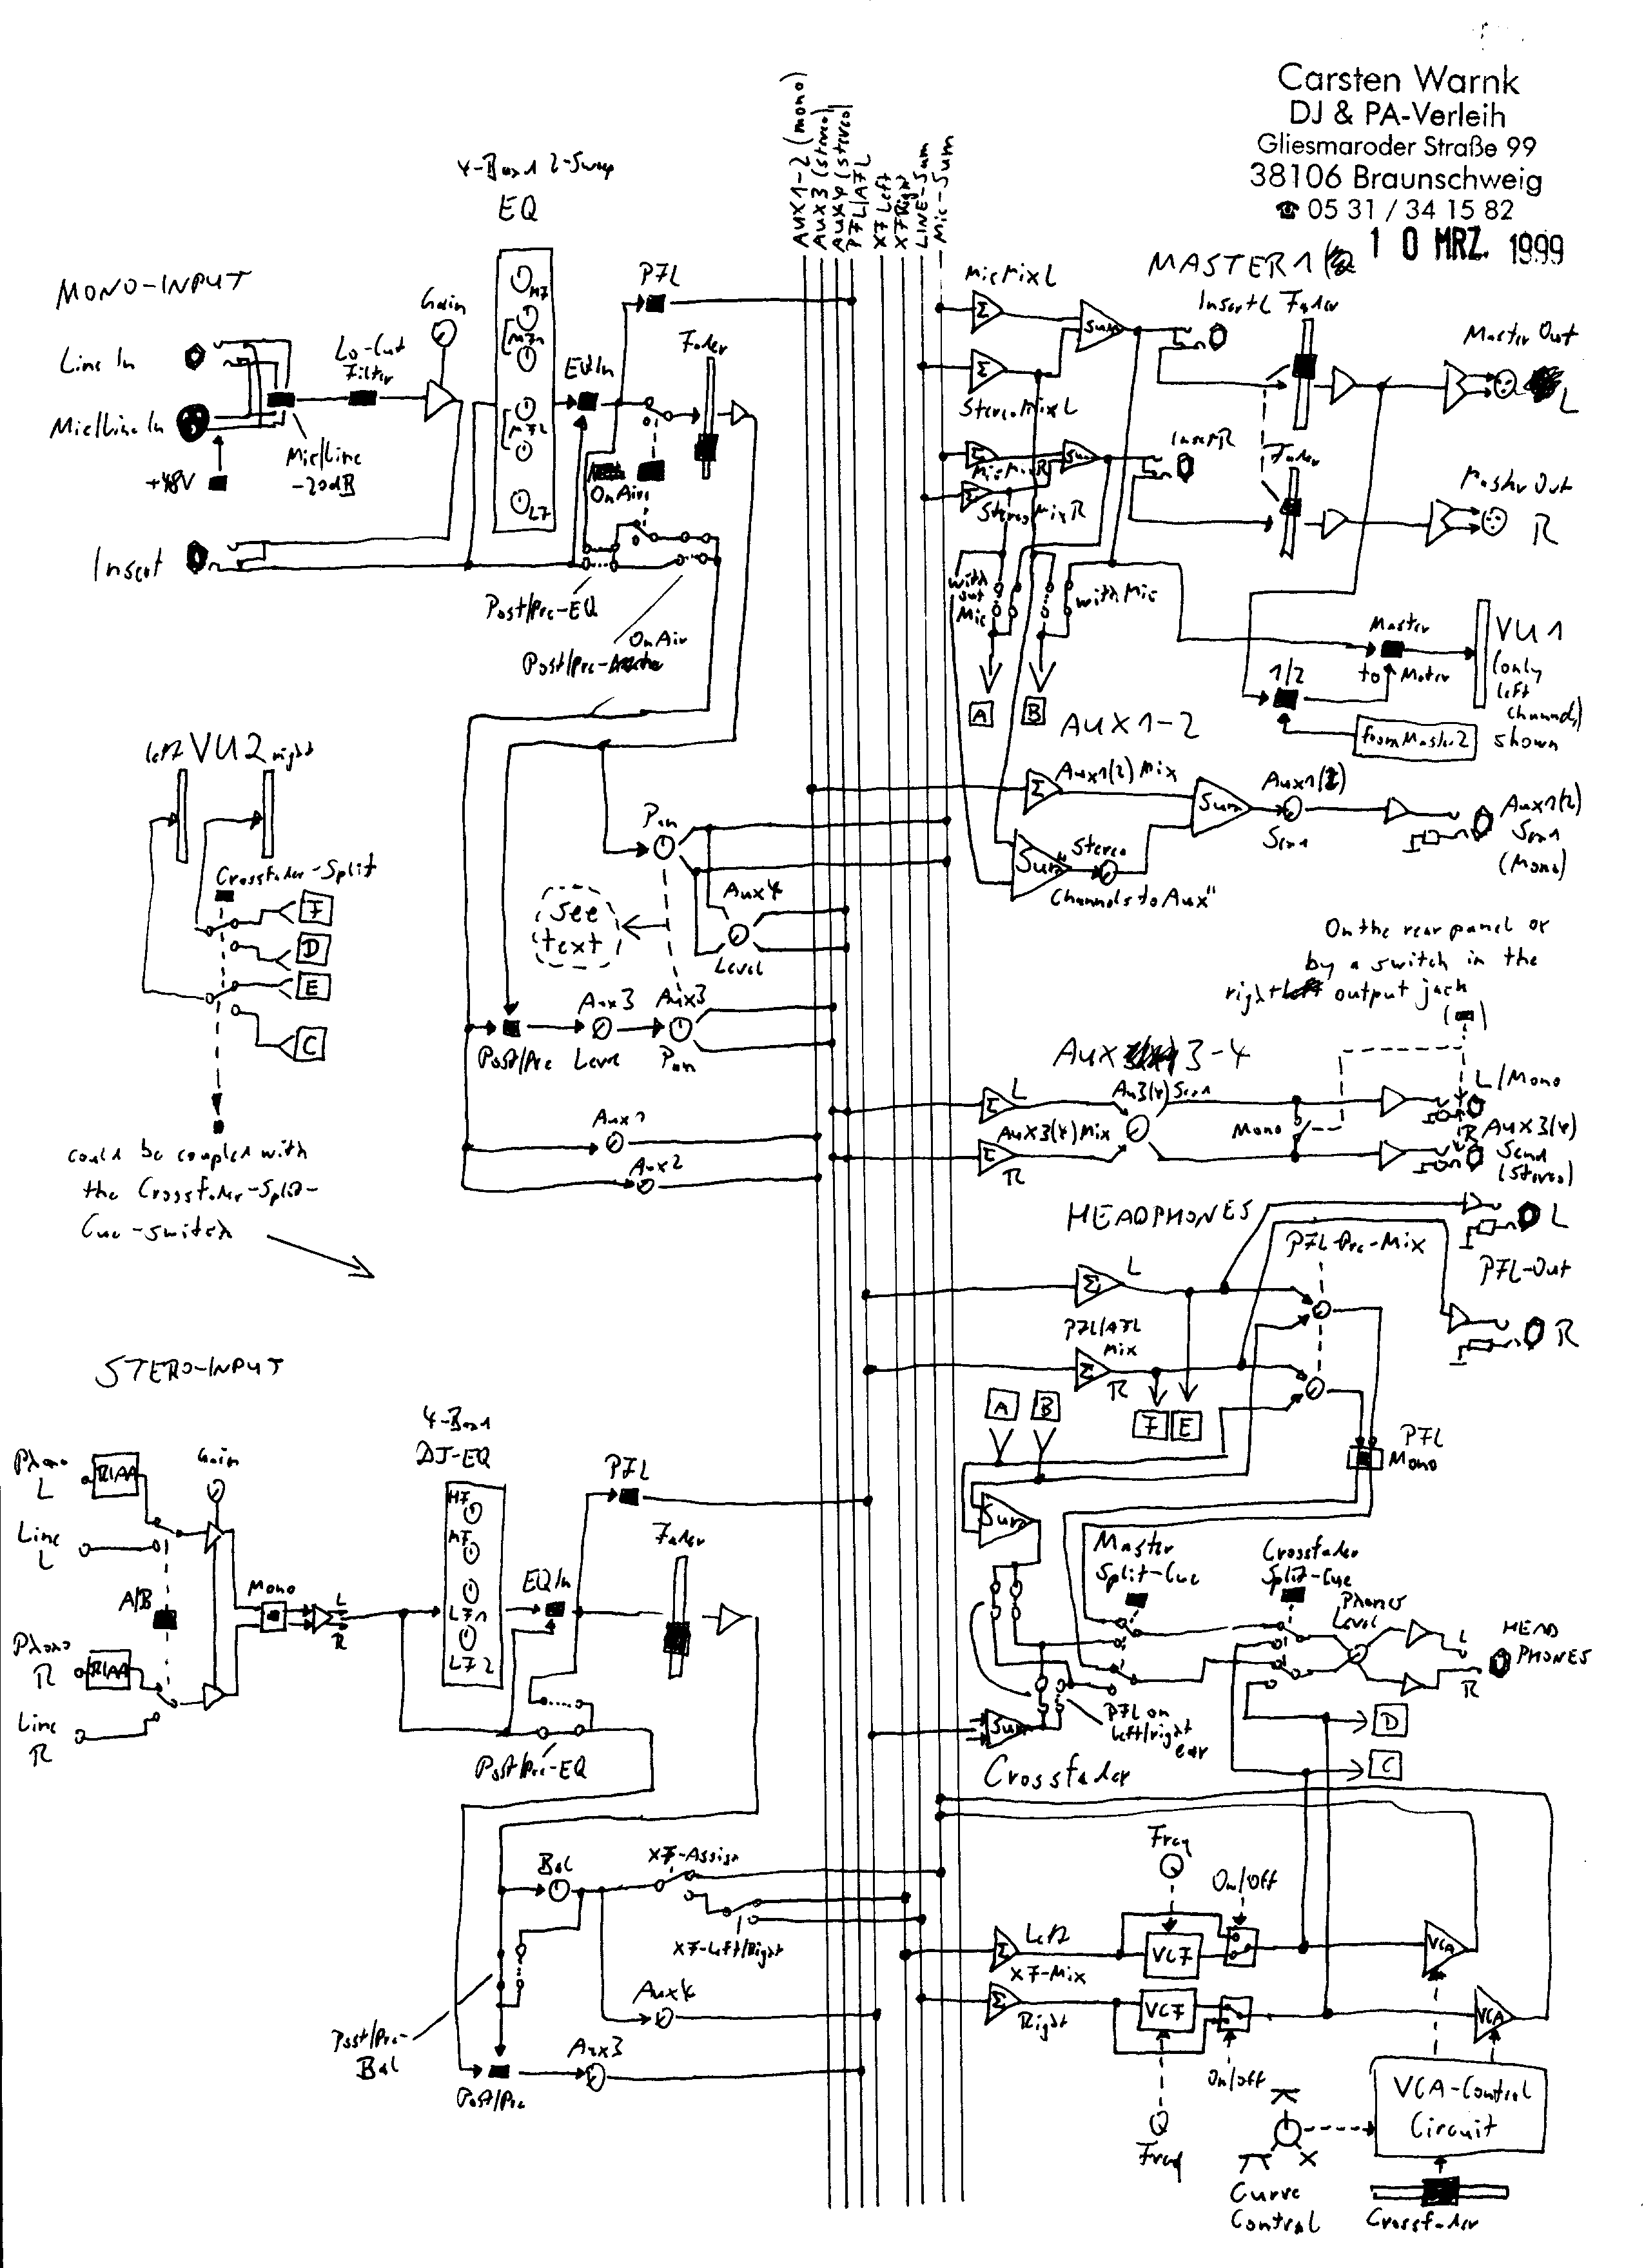 Carsten Warnk
DJ & PA-Verleih
Gliesmaroder Straße 99
38106 Braunschweig
☎ 05 31 / 34 15 82
10 MRZ. 1999
AUX 1-2 (mono)
AUX 3 (stereo)
AUX 4 (stereo)
PFL/AFL
XF Left
XF Right
LINE-Sum
Mic-Sum
MONO-INPUT
4-Band 2-Sweep
EQ
HF
MF1
MF2
LF
Gain
Line In
Lo-Cut
Filter
Mic/Line In
+48V
Mic/Line
-20dB
Insert
EQ In
PFL
Fader
On Air
Post/Pre-EQ
On Air
Post/Pre-
left VU2 right
Crossfader-Split
F
D
E
C
could be coupled with
the Crossfader-Split-
Cue-switch
Pan
Aux 4
Level
see
text
Post/Pre
Aux 3
Level
Aux 3
Pan
Aux 1
Aux 2
STERO-INPUT
Phono
L
RIAA
Line
L
A/B
Phono
R
RIAA
Line
R
Gain
Mono
L
R
4-Band
DJ-EQ
HF
MF
LF1
LF2
EQ In
PFL
Fader
Post/Pre-EQ
Bal
XF-Assign
XF-Left/Right
Aux 4
Post/Pre-
Bal
Post/Pre
Aux 3
MASTER 1
Mic Mix L
Σ
Sum
Insert L
Fader
Master Out
L
Σ
Stereo Mix L
Σ
Mic Mix R
Sum
Insert R
Fader
Master Out
R
Σ
Stereo Mix R
with
out
Mic
with Mic
A
B
Master
to Meter
1/2
from Master 2
VU 1
(only
left
channel)
shown
AUX 1-2
Σ
Aux 1(2) Mix
Sum
Aux 1(2)
Send
Aux 1(2)
Send
(Mono)
Sum
"Stereo
Channels to Aux"
On the rear panel or
by a switch in the
right output jack
AUX 3-4
Σ
L
Aux 3(4) Mix
Σ
R
Au3(4) Send
Mono
L/Mono
R
Aux 3(4)
Send
(Stereo)
HEADPHONES
PFL-Pre-Mix
L
PFL-Out
R
Σ
L
PFL/AFL
Mix
Σ
R
F
E
A
B
PFL
Mono
Sum
Master
Split-Cue
Crossfader
Split-Cue
Phones
Level
L
R
HEAD
PHONES
Sum
PFL on
left/right
ear
D
C
Crossfader
Freq
On/Off
Σ
Left
XF-Mix
Σ
Right
VCF
VCF
VCA
VCA
On/Off
Freq
Curve
Control
VCA-Control
Circuit
Crossfader